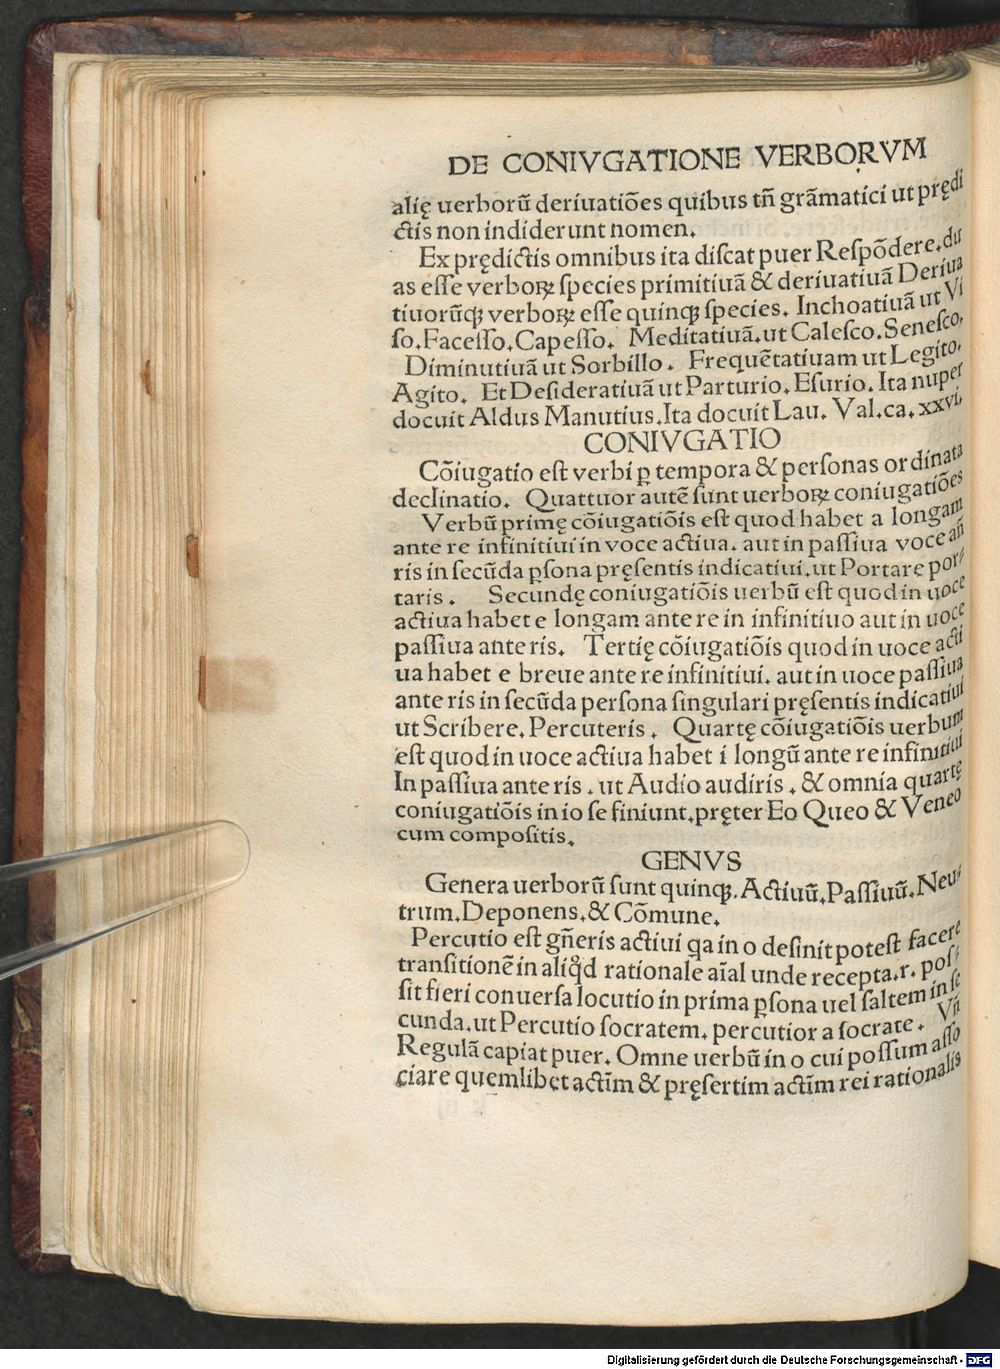 DE CONIVGATIONE VERBORVM
alię uerborũ deriuatiões quibus tñ grãmatici ut prędi
ctis non indiderunt nomen.
Ex prędictis omnibus ita diſcat puer Reſpõdere. du
as eſſe verboꝝ ſpecies primitiuã & deriuatiuã Deriua
tiuorũqꝫ verboꝝ eſſe quinqꝫ ſpecies. Inchoatiuã ut Vi
ſo. Faceſſo. Capeſſo. Meditatiuã. ut Caleſco. Seneſco.
Diminutiuã ut Sorbillo. Frequẽtatiuam ut Legito.
Agito. Et Deſideratiuã ut Parturio. Eſurio. Ita nuper
docuit Aldus Manutius. Ita docuit Lau. Val. ca. xxvi.
CONIVGATIO
Cõiugatio eſt verbi ꝑ tempora & perſonas ordinata
declinatio. Quattuor autẽ ſunt uerboꝝ coniugatiões
Verbũ primę cõiugatiõis eſt quod habet a longam
ante re infinitiui in voce actiua. aut in paſſiua voce añ
ris in ſecũda ꝑſona pręſentis indicatiui. ut Portare por⸗
taris. Secundę coniugatiõis uerbũ eſt quod in uoce
actiua habet e longam ante re in infinitiuo aut in uoce
paſſiua ante ris. Tertię cõiugatiõis quod in uoce acti
ua habet e breue ante re infinitiui. aut in uoce paſſiua
ante ris in ſecũda perſona ſingulari pręſentis indicatiui
ut Scribere. Percuteris. Quartę cõiugatiõis uerbum
eſt quod in uoce actiua habet i longũ ante re infinitiui
In paſſiua ante ris. ut Audio audiris. & omnia quartę
coniugatiõis in io ſe finiunt. pręter Eo Queo & Veneo
cum compoſitis.
GENVS
Genera uerborũ ſunt quinqꝫ. Actiuũ. Paſſiuũ. Neu⸗
trum. Deponens. & Cõmune.
Percutio eſt gñeris actiui qa in o deſinit poteſt facere
tranſitionẽ in aliqd rationale aĩal unde recepta. r. poſ⸗
ſit fieri conuerſa locutio in prima ꝑſona uel ſaltem in ſe
cunda. ut Percutio ſocratem. percutior a ſocrate. Vñ
Regulã capiat puer. Omne uerbũ in o cui poſſum aſſo
ciare quemlibet actĩm & pręſertim actĩm rei rationalis
Digitalisierung gefördert durch die Deutsche Forschungsgemeinschaft - DFG